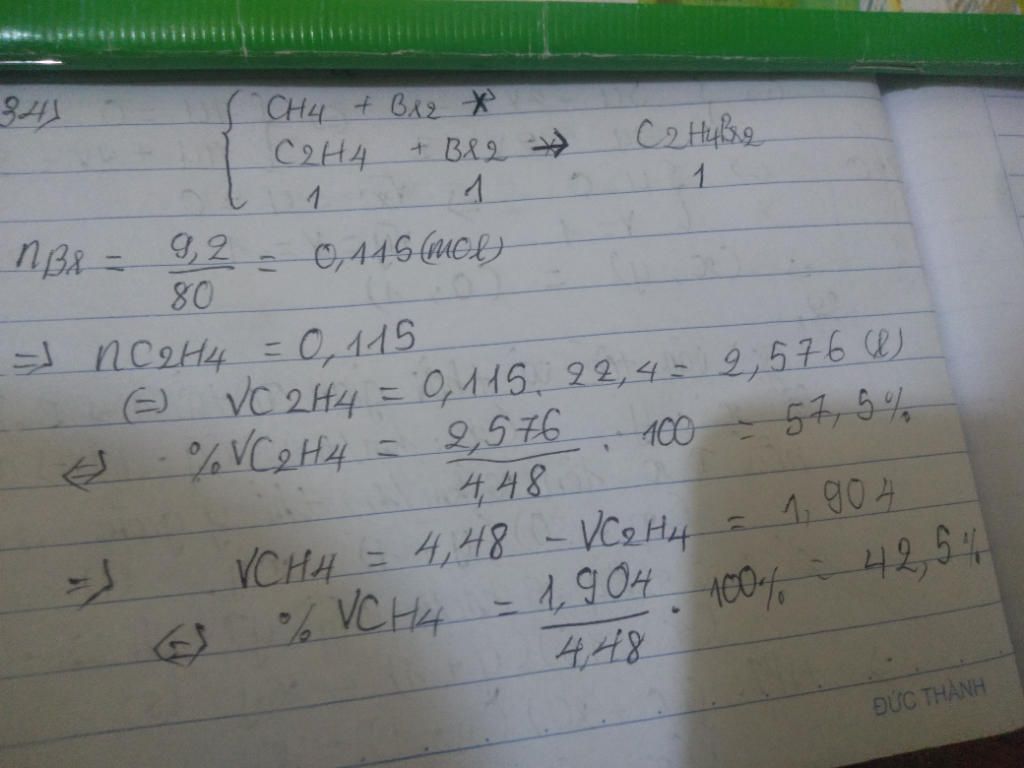 34) CH4 + Br2 ↛
C2H4 + Br2 → C2H4Br2
1 1 1
nBr = 9,2/80 = 0,115 (mol)
=> nC2H4 = 0,115
(=) VC2H4 = 0,115. 22,4 = 2,576 (l)
<=> %VC2H4 = 2,576/4,48 . 100 = 57,5%
=> VCH4 = 4,48 - VC2H4 = 1,904
<=> % VCH4 = 1,904/4,48 . 100% = 42,5%
ĐỨC THÀNH